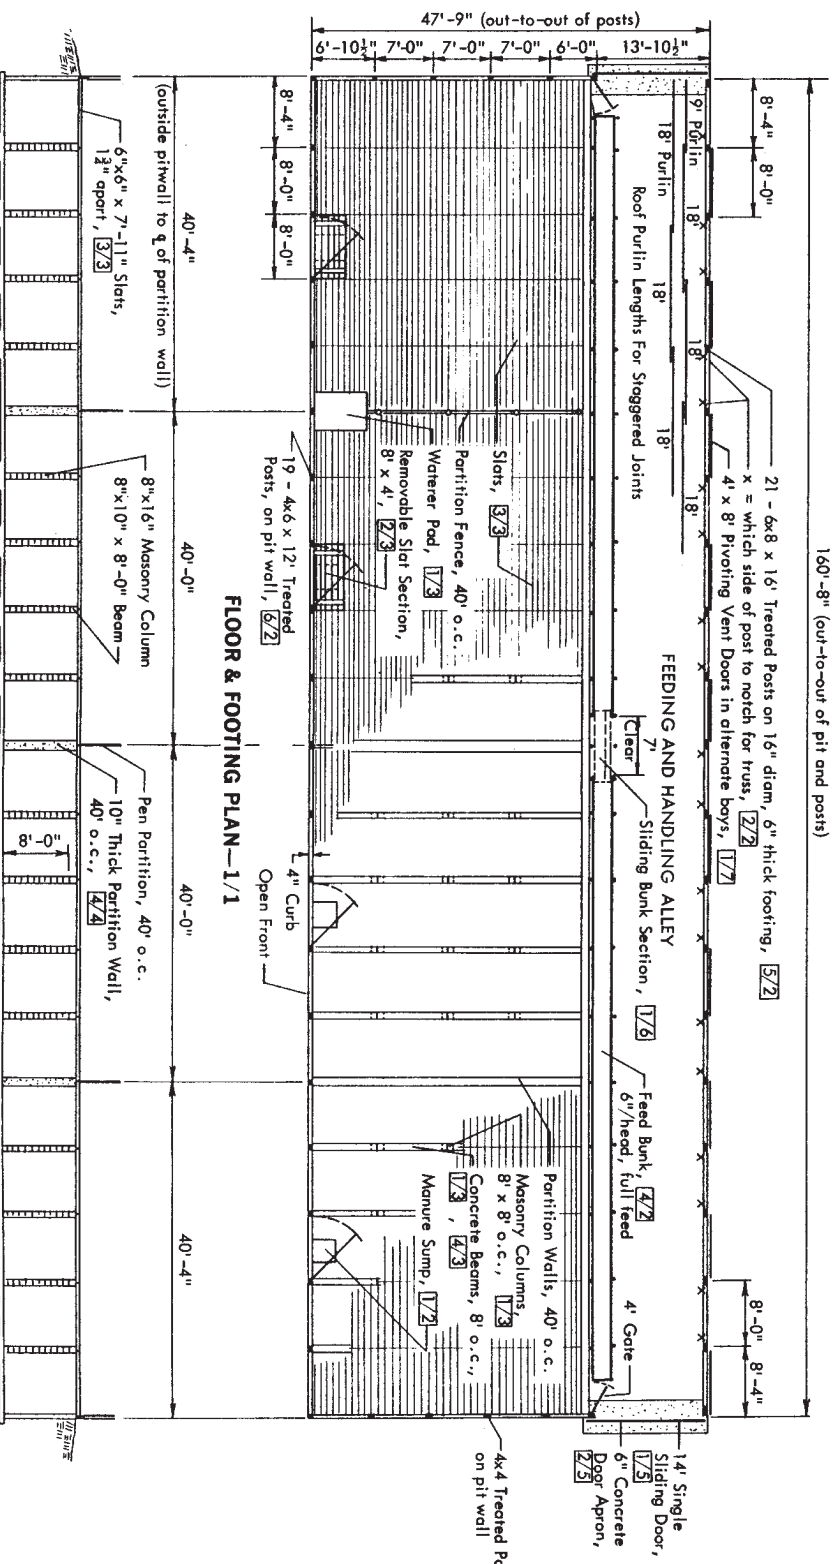 47'-9" (out-to-out of posts)
6'-10½"
7'-0"
7'-0"
7'-0"
6'-0"
13'-10½"
160'-8" (out-to-out of pit and posts)
8'-4"
8'-0"
9' Purlin
18' Purlin
18'
18'
18'
18'
18'
Roof Purlin Lengths For Staggered Joints
21 - 6x8 x 16' Treated Posts on 16" diam, 6" thick footing, 5/2
x = which side of post to notch for truss, 2/2
4' x 8' Pivoting Vent Doors in alternate bays, 1/7
FEEDING AND HANDLING ALLEY
7'
Clear
Sliding Bunk Section, 1/6
Feed Bunk, 4/2
6"/head, full feed
4' Gate
8'-0"
8'-4"
14' Single
Sliding Door,
1/5
6" Concrete
Door Apron,
2/5
4x4 Treated
on pit wall
8'-4"
8'-0"
8'-0"
Slats, 3/3
Partition Fence, 40' o.c.
Waterer Pad, 1/3
Removable Slat Section,
8' x 4', 2/3
19 - 4x6 x 12' Treated
Posts, on pit wall, 6/2
Partition Walls, 40' o.c.
Masonry Columns,
8' x 8' o.c., 1/3
Concrete Beams, 8' o.c.,
1/3, 4/3
Manure Sump, 1/2
4" Curb
Open Front
FLOOR & FOOTING PLAN—1/1
40'-4"
(outside pitwall to ℄ of partition wall)
40'-0"
40'-0"
40'-4"
6"x6" x 7'-11" Slats,
1¾" apart, 3/3
8"x16" Masonry Column
8"x10" x 8'-0" Beam
Pen Partition, 40' o.c.
10" Thick Partition Wall,
40' o.c., 4/4
8'-0"